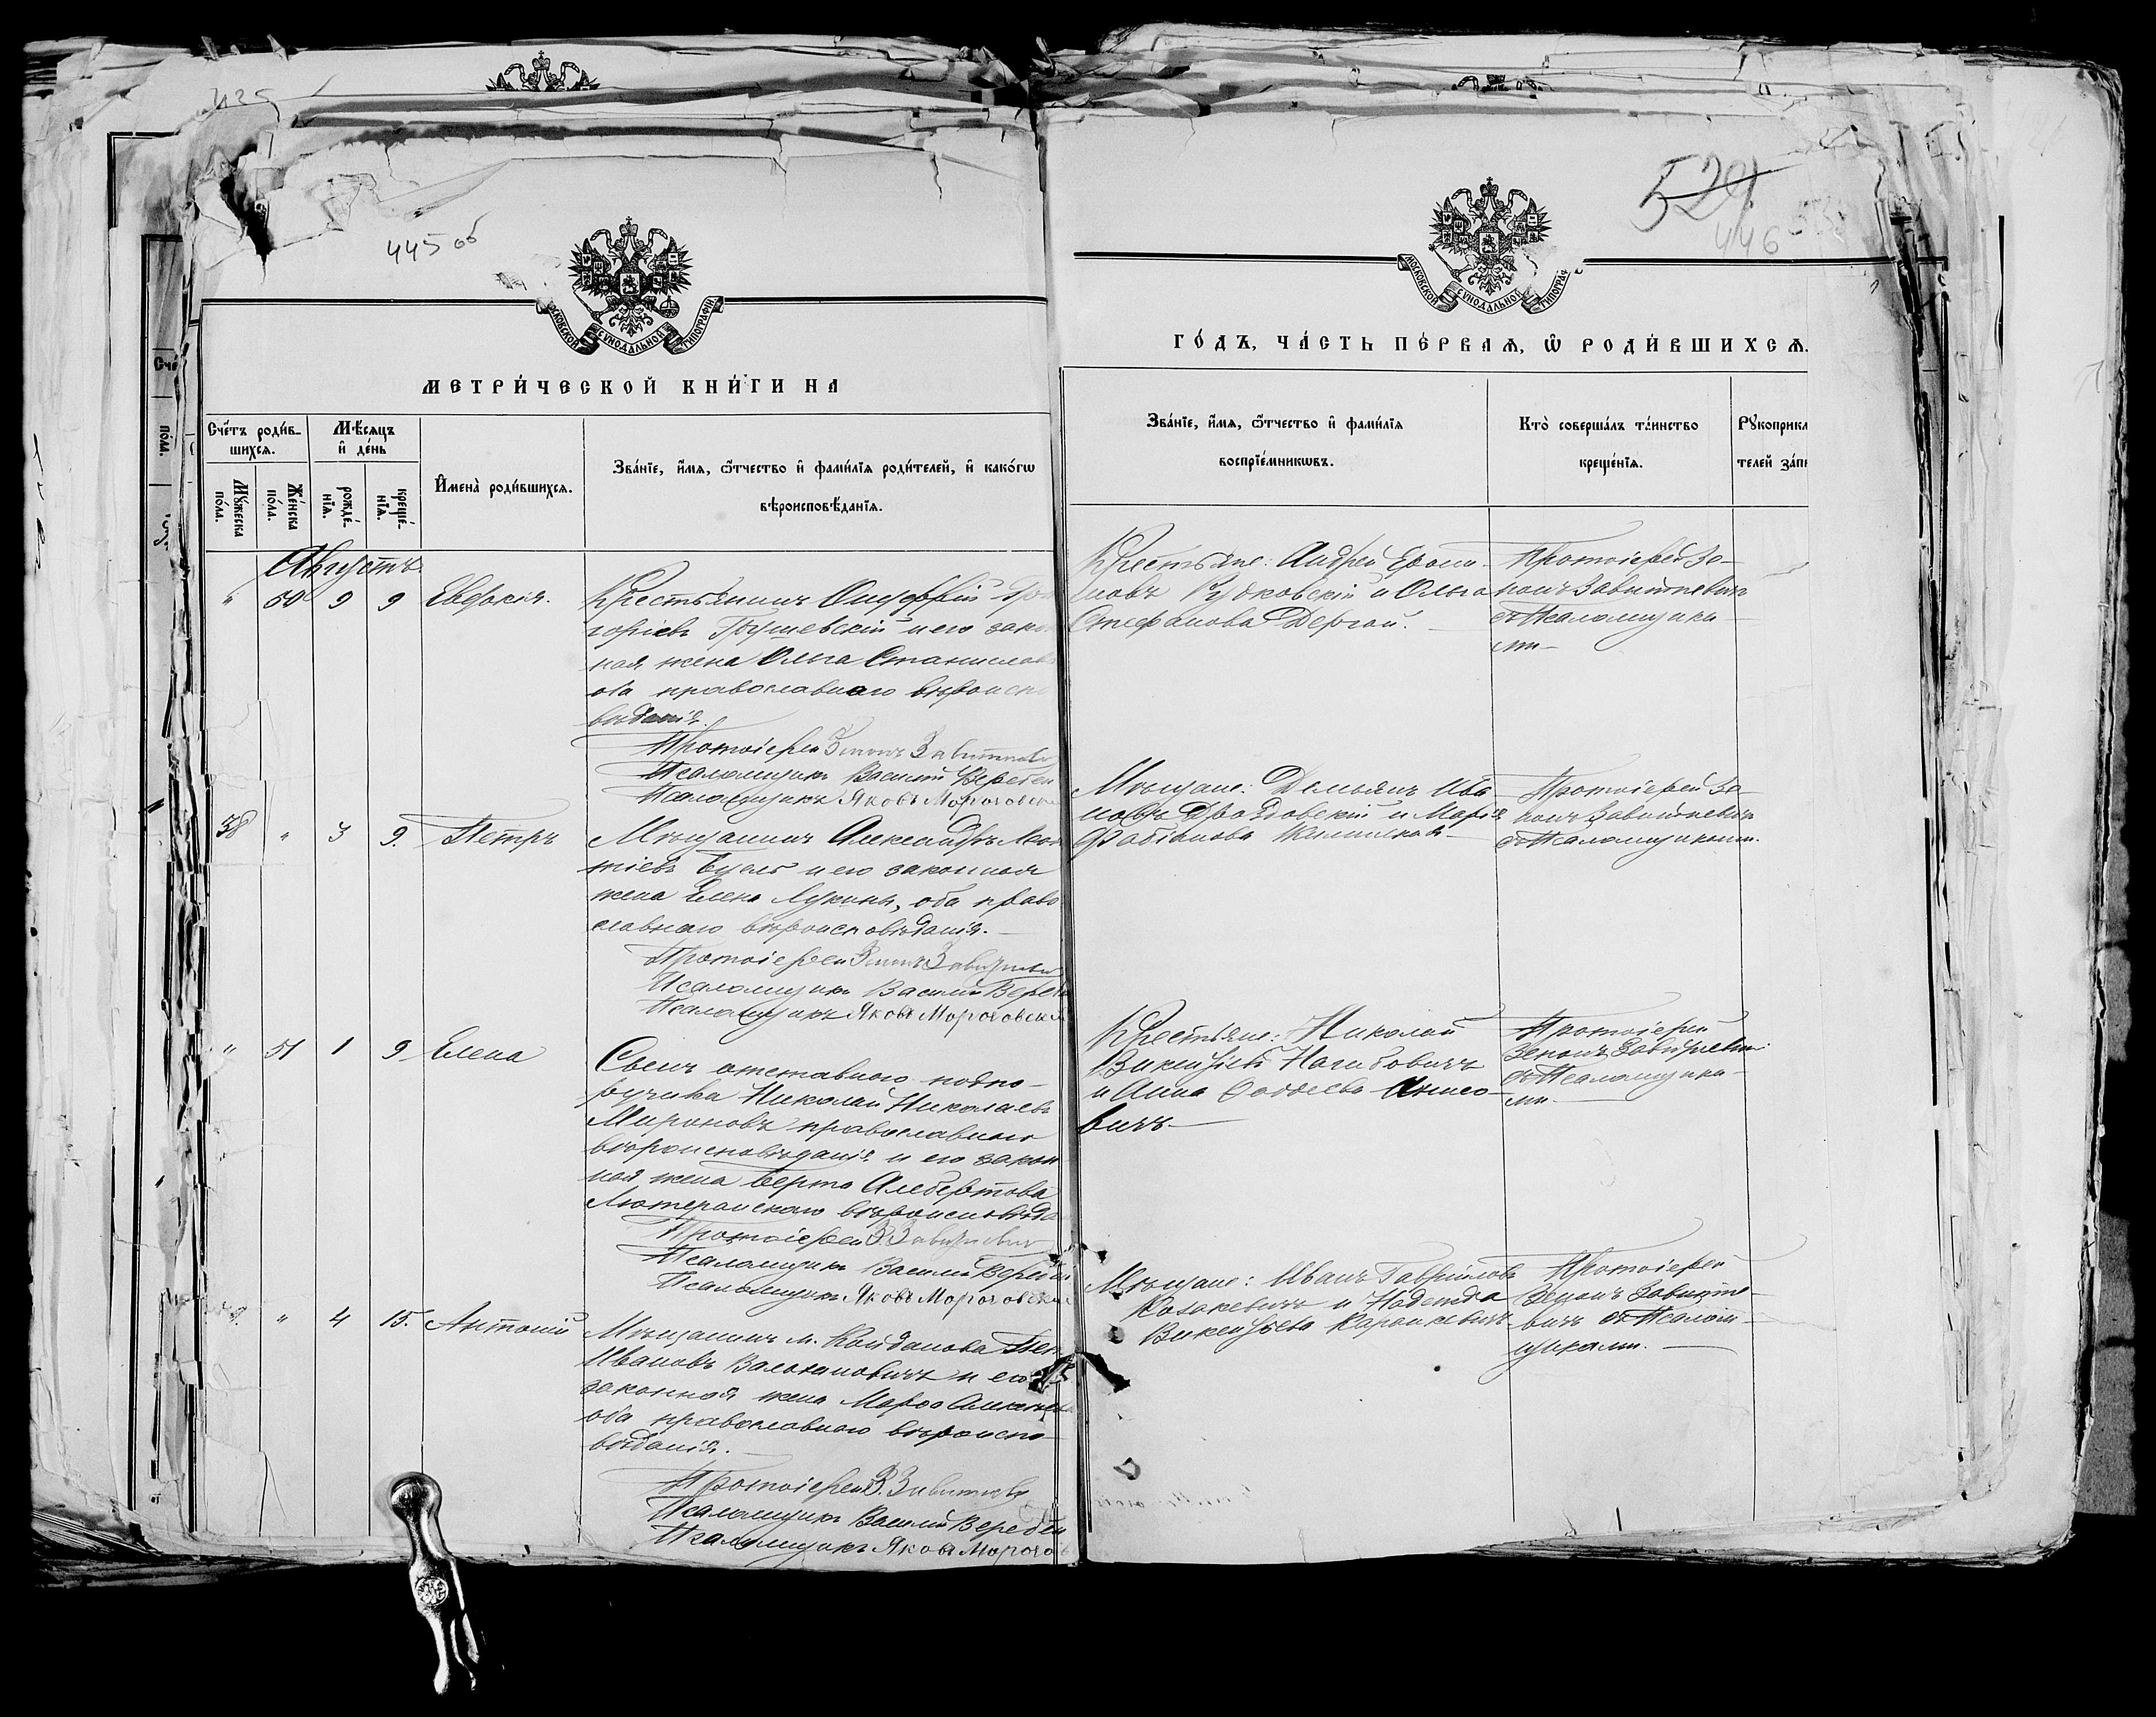 445 об
МОСКОВСКОЙ СУНОДАЛЬНОЙ ТИПОГРАФІИ
МЕТРИ́ЧЕСКОЙ КНИ́ГИ НА
Сче́тъ роди́в-
шихсѧ.
Мѣ́сѧцъ
и҆ де́нь
И҆мена̀ роди́вшихсѧ.
Зва́нїе, и҆́мѧ, ѻ҆́тчество и҆ фами́лїѧ роди́телей, и҆ како́гѡ
вѣроисповѣ́данїѧ.
Мꙋ́жеска
по́ла.
Же́нска
по́ла.
рожде́-
нїѧ.
креще́-
нїѧ.
Августъ
" 50 9 9 Евдокія.
Крестьянинъ Онуфрій Гри
горіевъ Грушевскій и его зако
ная жена Ольга Станиславо
оба православнаго вѣроиспо
вѣданія.
Протоіерей Зенонъ
Псаломщикъ Василій Веребей
Псаломщикъ Яковъ Морочовск
38 " 3 9. Петръ
Мѣщанинъ Александръ
тіевъ и его законная
жена Елена Лукина, оба право
славнаго вѣроисповѣданія.
Протоіерей Зенонъ
Псаломщикъ Василій Вереб
Псаломщикъ Яковъ Морочовскі
" 51 1 9 Елена
Сынъ отставного подпо-
ручика Николай Николаевъ
Мироновъ православнаго
вѣроисповѣданія и его закон
ная жена Берта Альбертова
Лютеранскаго вѣроисповѣда
Протоіерей З.
Псаломщикъ Василій Веребей
Псаломщикъ Яковъ Морочовскі
" 4 15. Антоній
Мѣщанинъ м. Койданова
Ивановъ Валахановичъ и его
законная жена Алексѣева
оба православнаго вѣроиспо-
вѣданія.
Протоіерей З.
Псаломщикъ Василій Веребей
Псаломщикъ Яковъ Морочов
529
446
МОСКОВСКОЙ СУНОДАЛЬНОЙ ТИПОГРАФ
ГО́ДЪ, ЧА́СТЬ ПЕ́РВАѦ, Ѡ҆ РОДИ́ВШИХСѦ.
Зва́нїе, и҆́мѧ, ѻ҆́тчество и҆ фами́лїѧ
воспрїе́мникѡвъ.
Кто̀ соверша́лъ та́инство
креще́нїѧ.
Рꙋкоприкл
телей за́пи
Крестьяне: Андрей
новъ Рудковскій и Ольга
Стефанова Дергай.
Протоіерей Зе-
нонъ Завитневичъ
съ Псаломщика-
ми-
Мѣщане: Демьянъ Ива
новъ Дроздовскій и Марія
Фабіанова
Протоіерей Зе-
нонъ Завитневичъ
съ Псаломщиками.
Крестьяне: Николай
Викентіевъ Нагибовичъ
и Анна
вичъ-
Протоіерей
Зенонъ Завитневичъ
съ Псаломщика-
ми-
Мѣщане: Иванъ Гавриловъ
Козакевичъ и Надежда
Викентіева
Протоіерей
Зенонъ Завитне-
вичъ съ Псалом-
щиками.